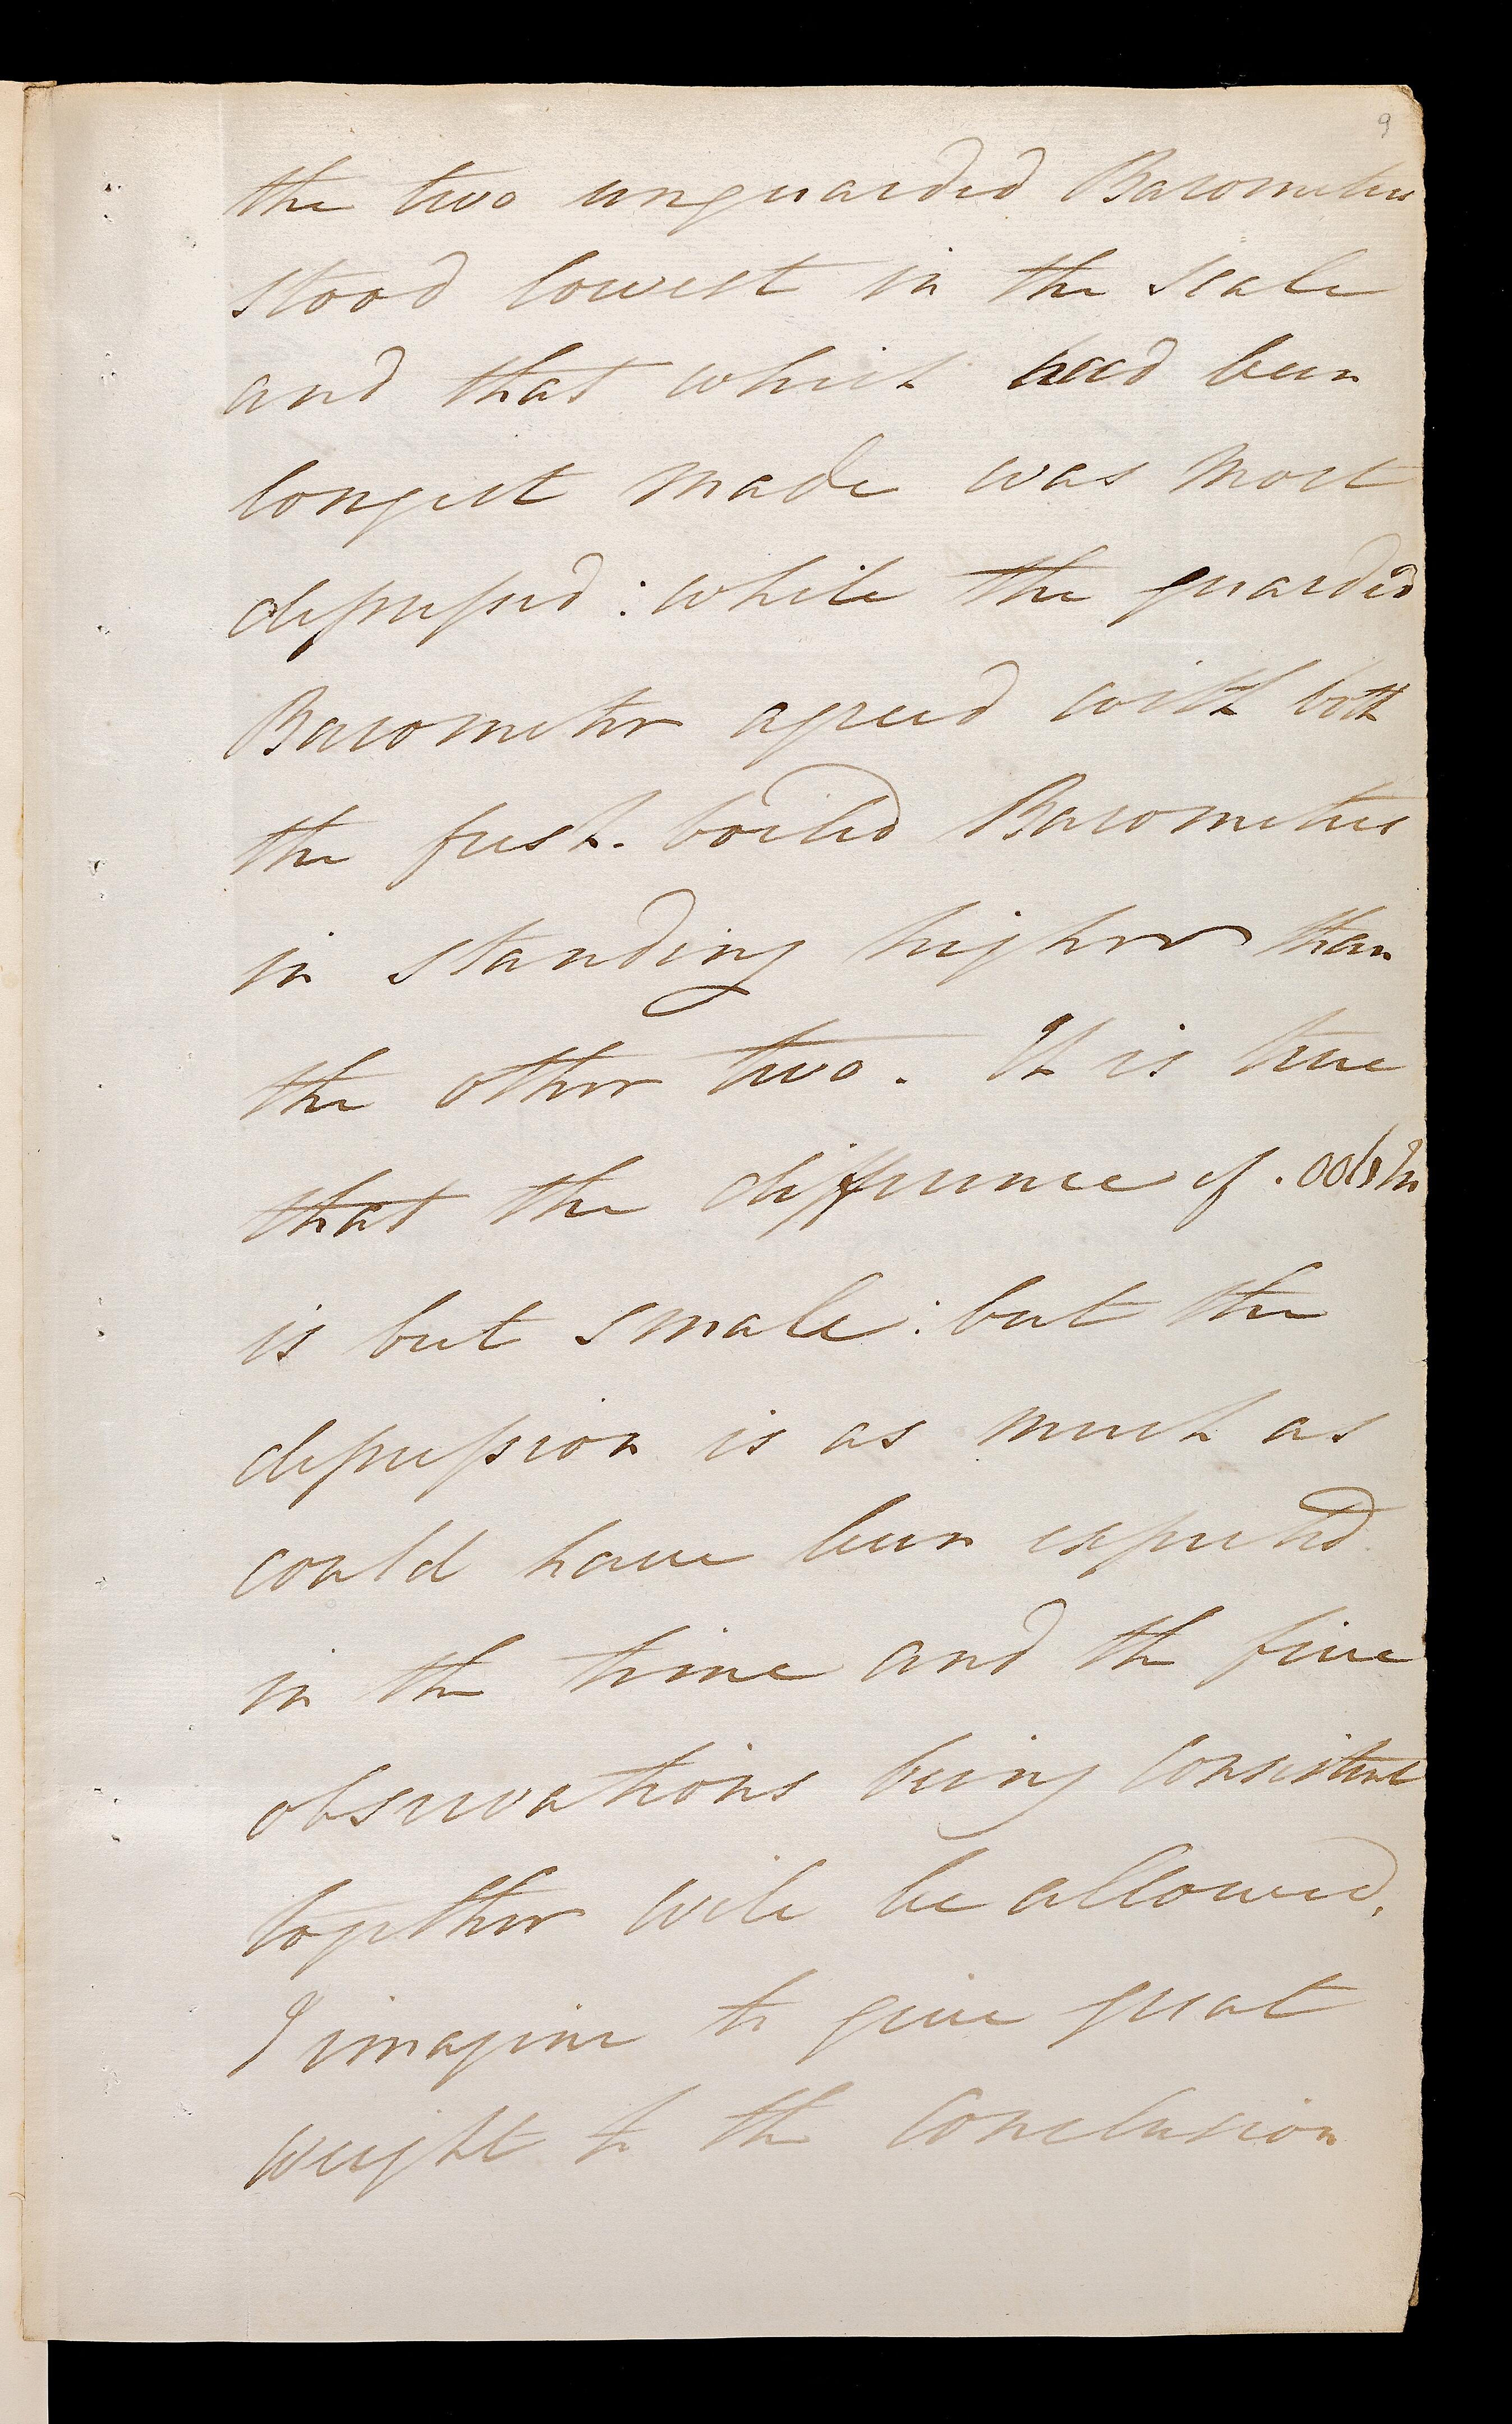 9
the two unguarded Barometers
stood lowest in the scale
and that which had been
longest made was most
depressed : while the guarded
Barometer agreed with both
the fresh-boiled Barometers
in standing higher than
the other two. It is true
that the difference of
is but small : but the
depression is as much as
could have been expected
in the time and the five
observations being consistent
together will be allowed,
I imagine to give great
weight to the conclusion